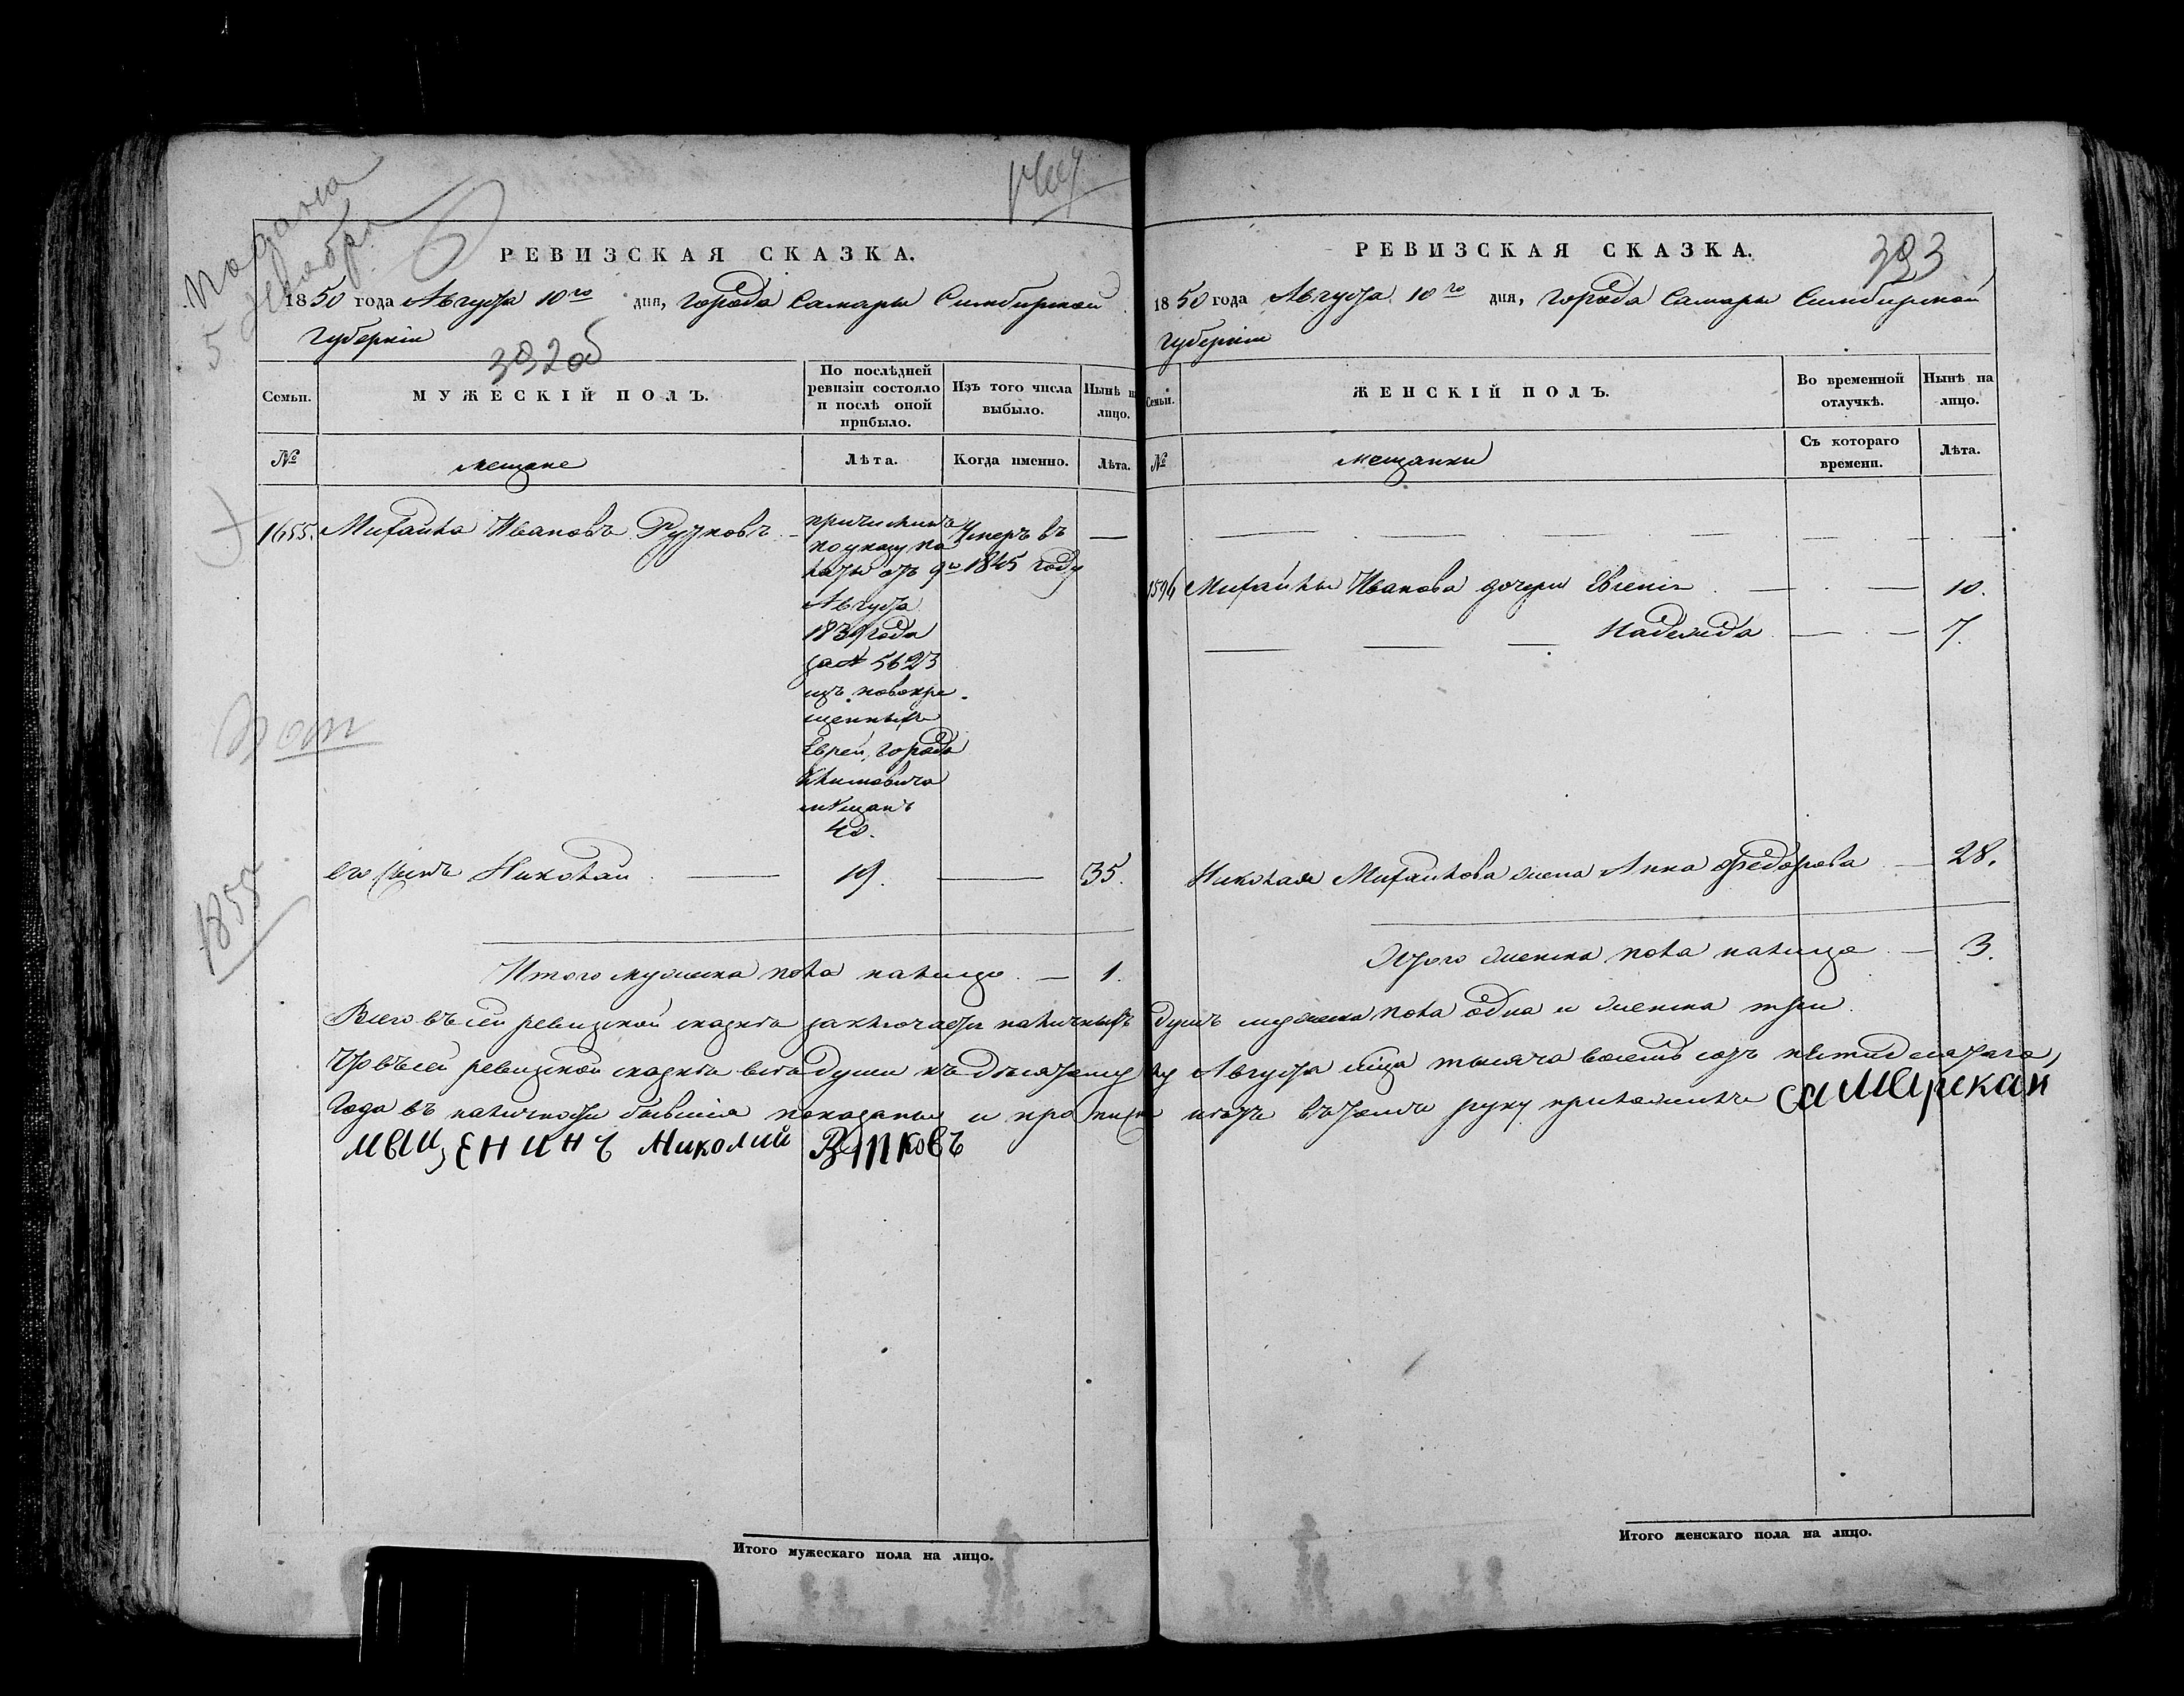 подана
5 декабря
РЕВИЗСКАЯ СКАЗКА.
1850 года Августа 10го дня, города Самары Симбирской
губерніи
392об
Семьи.
МУЖЕСКІЙ ПОЛЪ.
По послѣдней ревизіи состояло и послѣ оной прибыло.
Изъ того числа выбыло.
Нынѣ на лицо.
№
мещане
Лѣта.
Когда именно.
Лѣта.
1655. Михайла Ивановъ
причисленъ
по указу па
латы отъ 9го
Августа
1839 года
за № 5623
изъ новокре
щенныхъ
Еврей, города
Климовича
мещанъ
40.
Умеръ въ
1845 году
его сынъ Николай 19. 35.
Итого мужеска пола налицо — 1.
1855
РЕВИЗСКАЯ СКАЗКА.
393
1850 года Августа 10го дня, города Самары Симбирской
губерніи
Семьи.
ЖЕНСКІЙ ПОЛЪ.
Во временной отлучкѣ.
Нынѣ на лицо.
№
мещанки
Съ котораго времени.
Лѣта.
Михайлы Иванова дочери Евгенія 10.
Надежда 7.
Николая Михайлова жена Анна Федорова 28.
Итого женска пола налицо — 3.
Всего въ сей ревизской сказкѣ заключается наличныхъ душъ мужеска пола одна и женска три
Что въ сей ревизской сказкѣ всѣ души къ десятому Августа мца тысяча восемь сотъ пятидесятаго
года въ наличности бывшія показаны и прописныхъ нѣтъ въ томъ руку приложилъ самарскай
мещенинъ Николай
Итого мужескаго пола на лицо.
Итого женскаго пола на лицо.